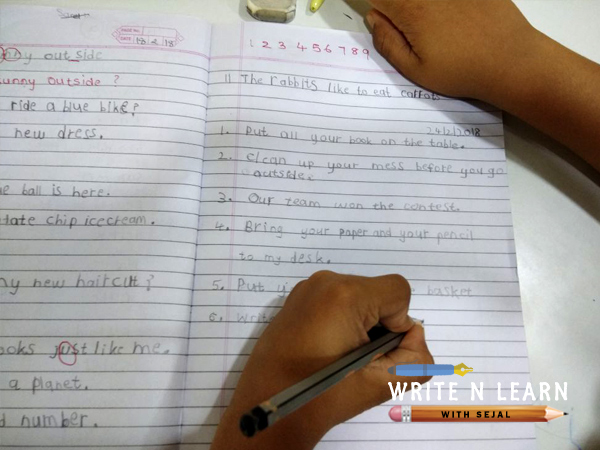 PAGE NO.
DATE 19 2 18
ny outside
unny outside ?
ride a blue bike?
new dress.
ball is here.
late chip icecream.
ny new haircut?
ooks just like me.
a planet.
number.
1 2 3 4 5 6 7 8 9
11 The rabbits like to eat carrots
24/2/2018
1. Put all your book on the table.
2. Clean up your mess before you go
outside.
3. Our team won the contest.
4. Bring your paper and your pencil
to my desk.
5. Put basket
6. Write
WRITE N LEARN
WITH SEJAL